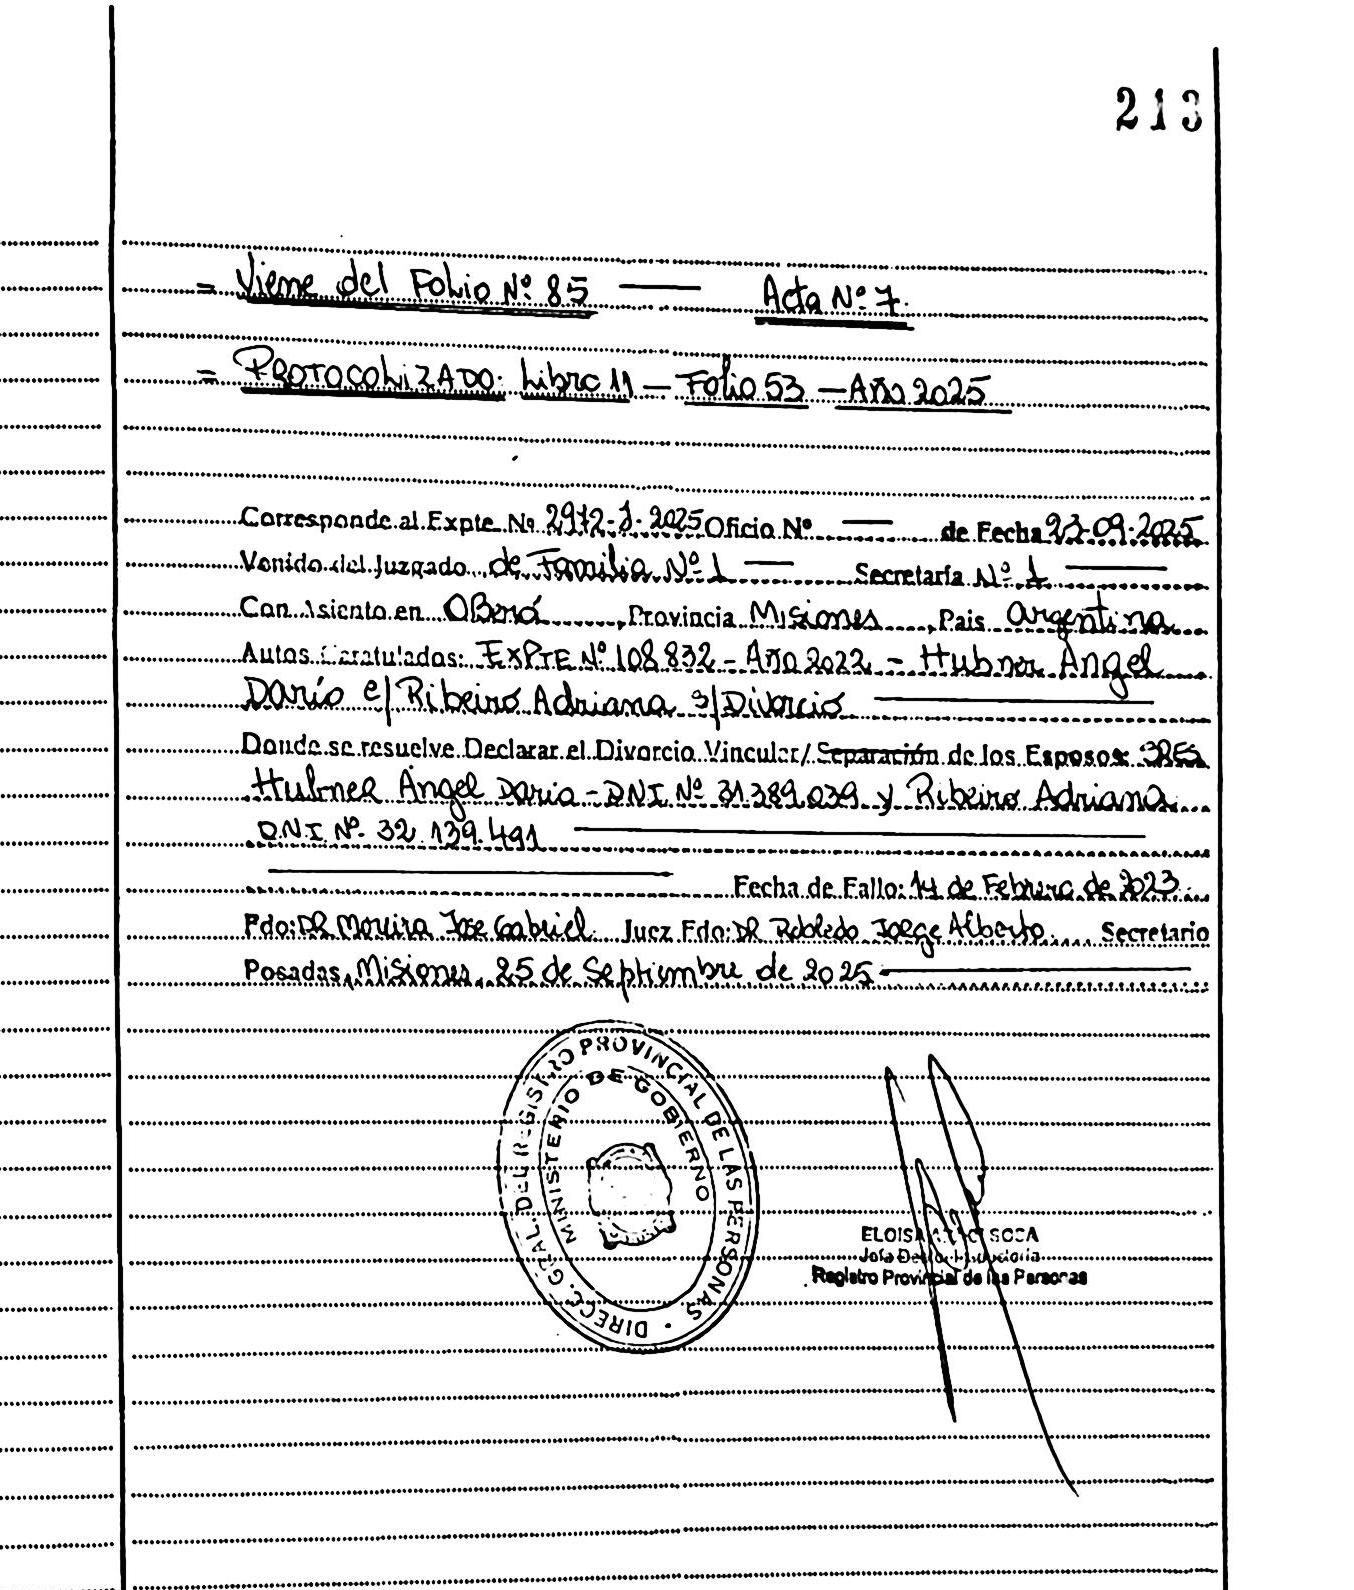 213
= Viene del Folio Nº 85 — Acta Nº 7.
= PROTOCOLIZADO: Libro 11 — Folio 53 — Año 2025
Corresponde al Expte Nº 2972-J-2025 Oficio Nº — de Fecha 23-09-2025
Venido del Juzgado de Familia Nº 1 — Secretaría Nº 1 —
Con Asiento en Oberá, Provincia Misiones, Pais Argentina
Autos Caratulados: EXPTE Nº 108832 - Año 2022 - Hubner Ángel
Darío c/ Ribeiro Adriana s/ Divorcio
Donde se resuelve Declarar el Divorcio Vincular/ Separación de los Esposos: SRES
Hubner Ángel Dario - DNI Nº 31.389.039 y Ribeiro Adriana
D.N.I Nº 32.139.491
Fecha de Fallo: 14 de Febrero de 2023
Fdo: DR Moreira Jose Gabriel Juez Fdo: DR Robledo Jorge Alberto Secretario
Posadas, Misiones, 25 de Septiembre de 2025
DIRECC. GRAL. DEL REGISTRO PROVINCIAL DE LAS PERSONAS
MINISTERIO DE GOBIERNO
ELOISA SOSA
Registro Provincial de las Personas